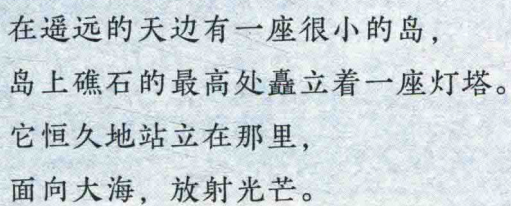 在遥远的天边有一座很小的岛，
岛上礁石的最高处矗立着一座灯塔。
它恒久地站立在那里，
面向大海，放射光芒。